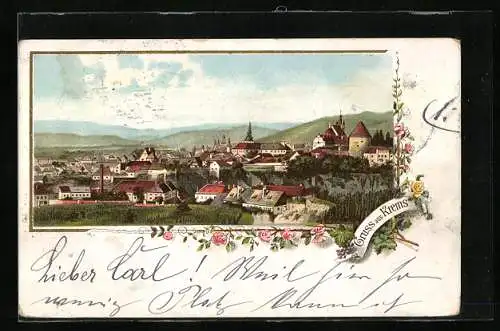 Gruss aus Krems
Lieber Carl! Weil hier so
wenig Platz kann ich